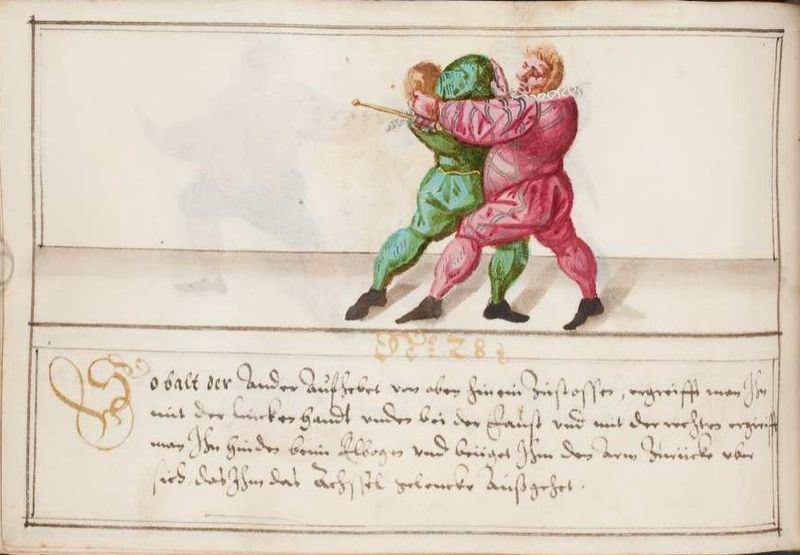 No: 28:
So balt der Ander Aufhebet von oben hinein Zustossen, ergreifft man Ihn
mit der lincken handt unden bei der Faust und mit der rechten ergreifft
man Ihn hinden beim Elbogen und beüget Ihm den arm Zurücke uber
sich das Ihm das Achssel gelencke Außgehet.